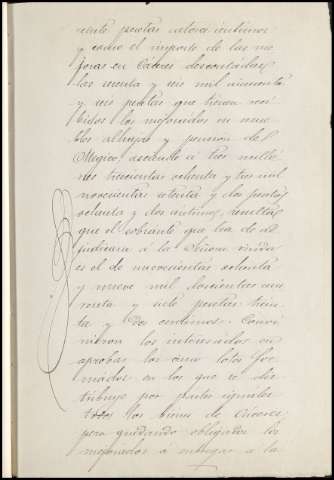 cuenta pesetas catorce centimos
y como el importe de las me
joras en Cáceres descontadas
las sesenta y seis mil cincuenta
y seis pesetas que tienen reci
bidos los mejorados en mue
bles alhajas y pension de
Megico, asciende á tres millo
nes trescientas ochenta y tres mil
novecientas setenta y dos pesetas
ochenta y dos centimos, resulta
que el sobrante que ha de ad
judicarse á la Señora viuda
es el de novecientas ochenta
y nueve mil doscientas cin
cuenta y siete pesetas trein
ta y dos centimos. Convi
nieron los interesados en
aprobar los cinco lotes for
mados en los que se dis
tribuye por partes iguales
todos los bienes de Cáceres,
pero quedando obligados los
mejorados á entregar á la